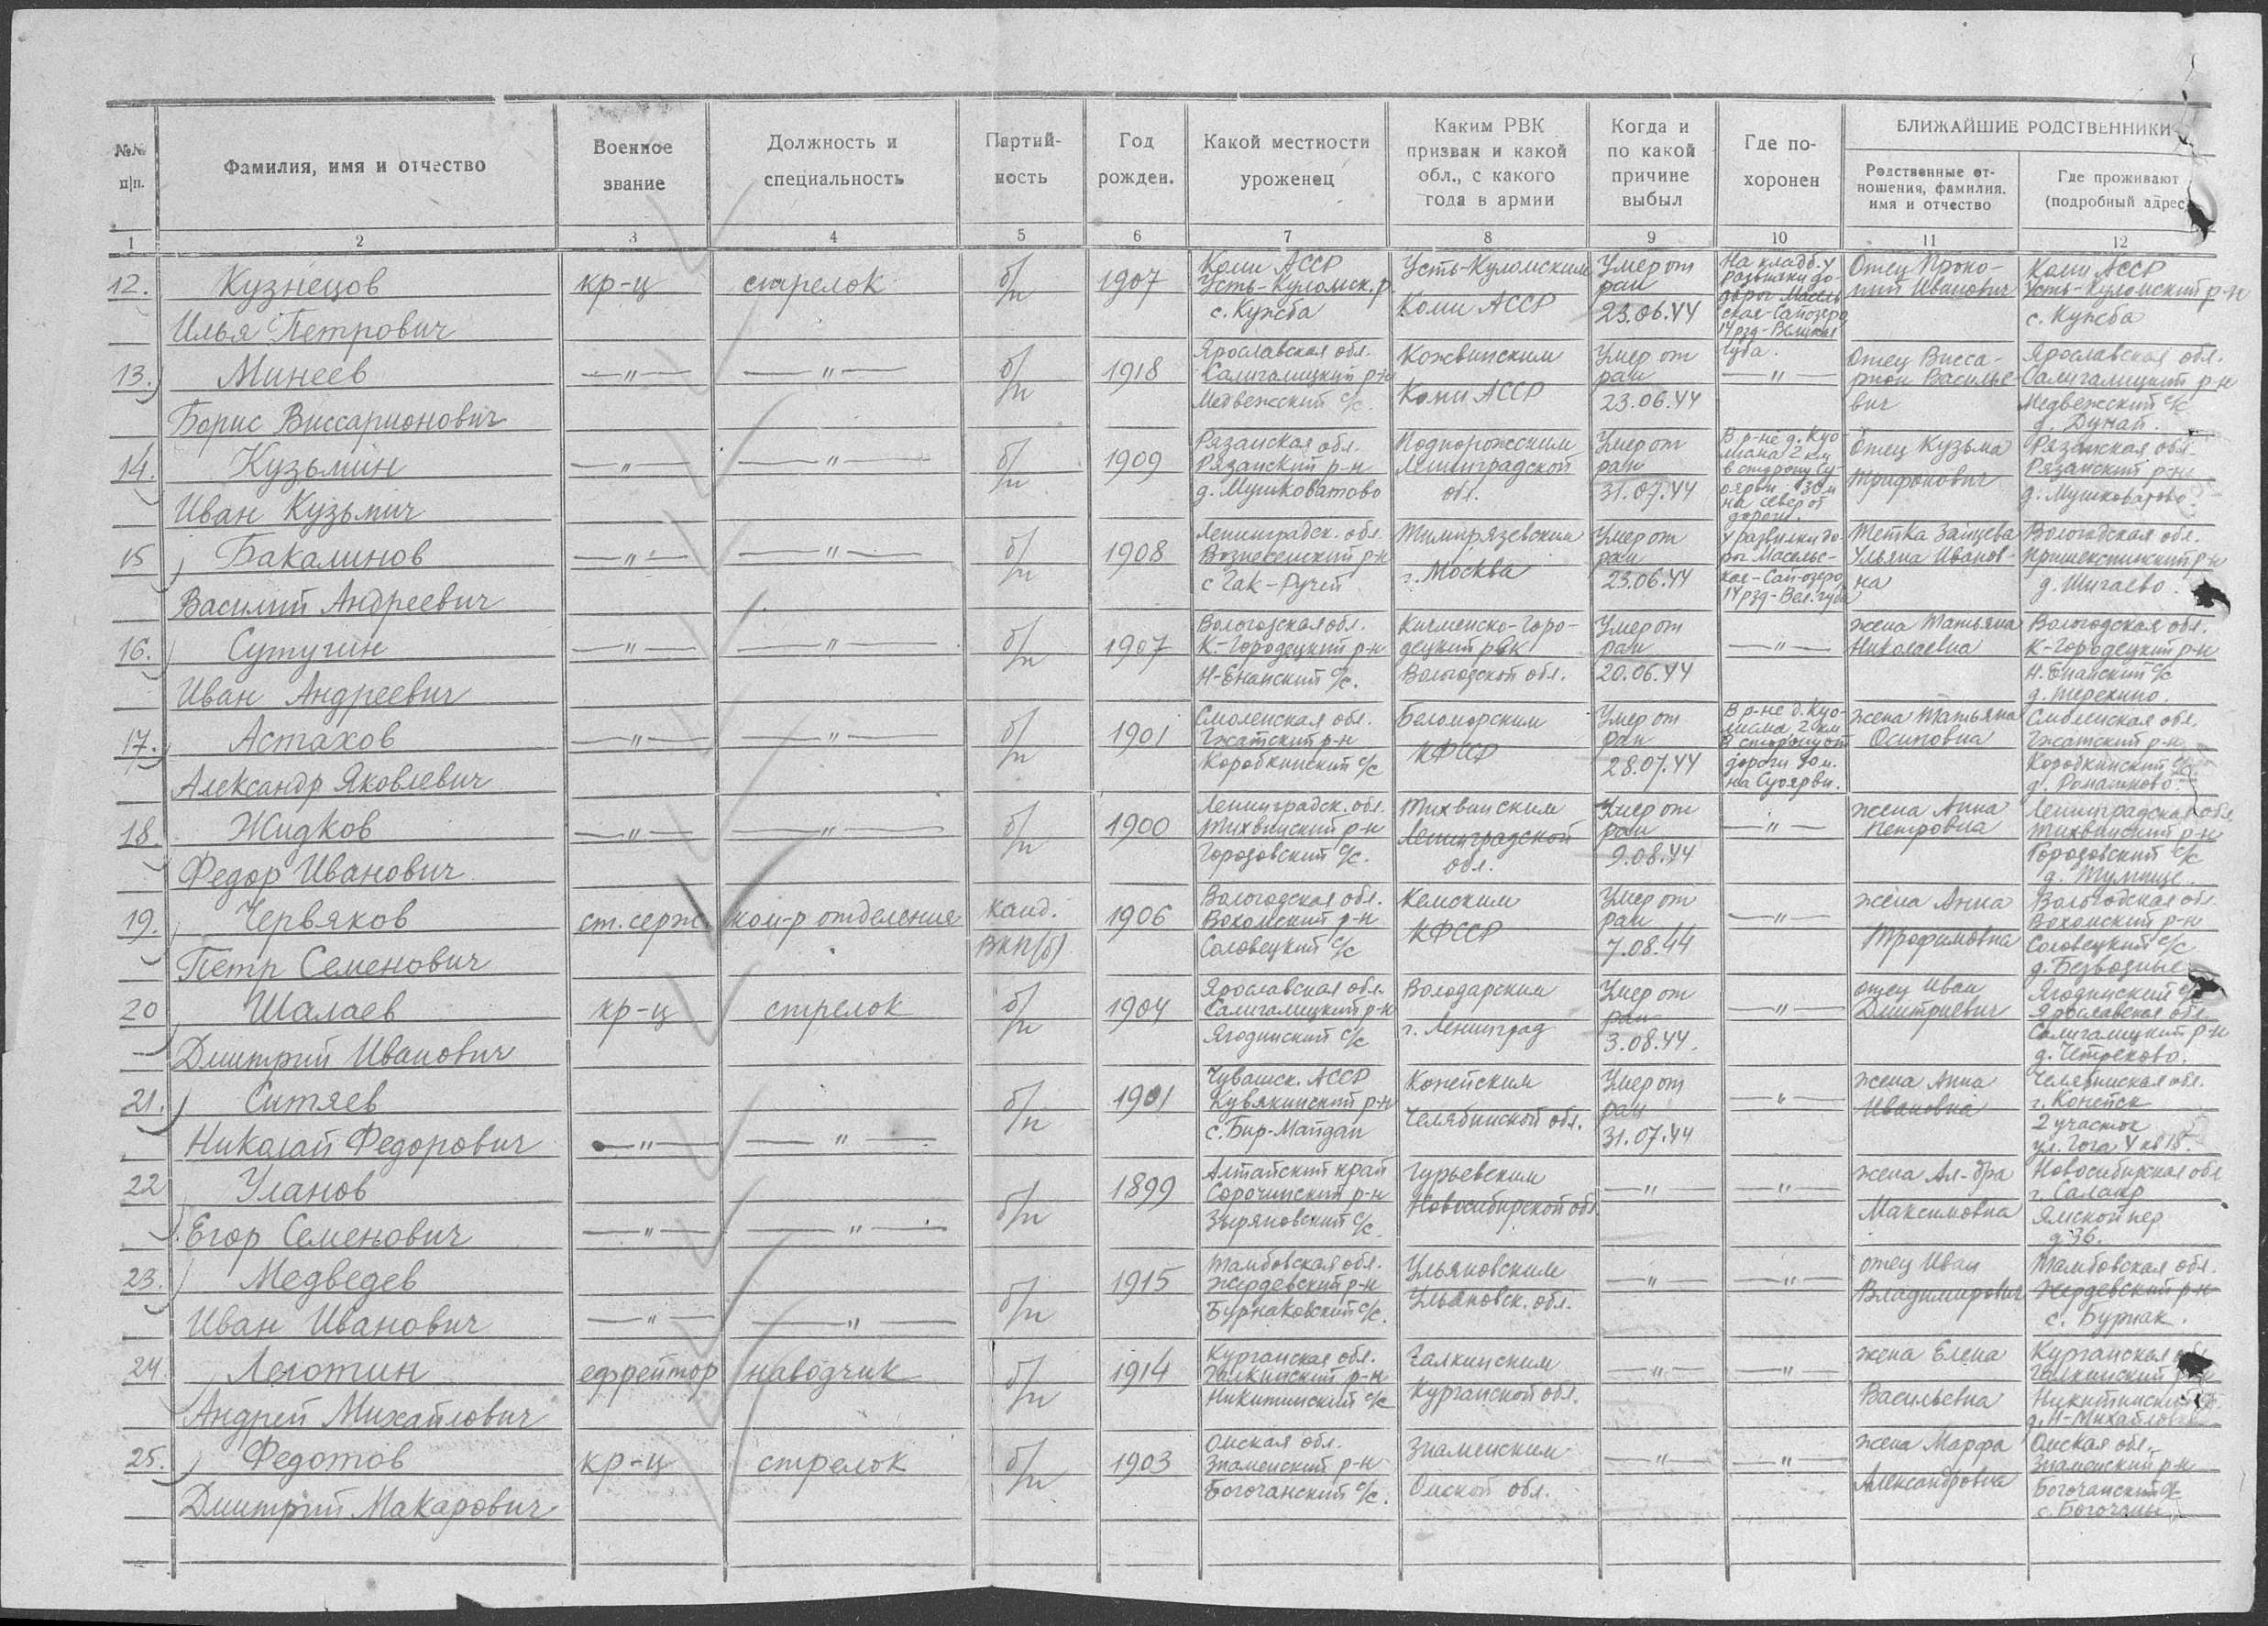 №№ п/п.
Фамилия, имя и отчество
Военное звание
Должность и специальность
Партий-ность
Год рожден.
Какой местности уроженец
Каким РВК призван и какой обл., с какого года в армии
Когда и по какой причине выбыл
Где по-хоронен
БЛИЖАЙШИЕ РОДСТВЕННИКИ
Родственные от-ношения, фамилия, имя и отчество
Где проживают (подробный адрес
1 2 3 4 5 6 7 8 9 10 11 12
12. Кузнецов кр-ц стрелок б/п 1907
Илья Петрович
Коми АССР
Усть-Куломск. р
с. Кужба
Усть-Куломским
Коми АССР
Умер от
ран
23.06.44
На кладб. у
развилки до-
дорог Масель
ская-Сапозеро
14 рзд-Великая
губа.
Отец Проко-
пий Иванович
Коми АССР
Усть-Куломский р-н
с. Кужба
13. Минеев —"— —"— б/п 1918
Борис Виссарионович
Ярославская обл.
Салигалицкий р-н
Медвежский с/с.
Кожвинским
Коми АССР
Умер от
ран
23.06.44
—"—
Отец Висса-
рион Василье-
вич
Ярославская обл.
Салигалицкий р-н
Медвежский с/с
д. Дунай.
14. Кузьмин —"— —"— б/п 1909
Иван Кузьмич
Рязанская обл.
Рязанский р-н
д. Мушковатово
Подпорожским
Ленинградской
обл.
Умер от
ран
31.07.44
В р-не д. Куо
лисма 2 км
в сторону Су-
оярви 30 м
на север от
дороги.
Отец Кузьма
Трифонович
Рязанская обл.
Рязанский р-н
д. Мушковатово.
15 Бакалинов —"— —"— б/п 1908
Василий Андреевич
Ленинградск. обл.
Вознесенский р-н
с Гак-Ручей
Тимирязевским
г. Москва
Умер от
ран
23.06.44
У развилки до-
рог Масельс-
кая-Сапозеро
14 рзд-Вел. губа
Тетка Зайцева
Ульяна Иванов-
на
Вологодская обл.
д. Шигаево.
16. Сутугин —"— —"— б/п 1907
Иван Андреевич
Вологодская обл.
К.-Городецкий р-н
Н-Енанский с/с.
Кичменско-Горо-
децкий рвк
Вологодской обл.
Умер от
ран
20.06.44
—"—
жена Татьяна
Николаевна
Вологодская обл.
К-Городецкий р-н
Н.Енанский с/с
д. Терехино.
17. Астахов —"— —"— б/п 1901
Александр Яковлевич
Смоленская обл.
Гжатский р-н
Коробкинский с/с
Беломорским
КФССР
Умер от
ран
28.07.44
В р-не д. Куо-
лисма, 2 км
В сторону от
дороги 30 м.
на Суоярви.
жена Татьяна
Осиповна
Смоленская обл.
Гжатский р-н
Коробкинский с/с
д. Ромашково.
18. Жидков —"— —"— б/п 1900
Федор Иванович
Ленинградск. обл.
Тихвинский р-н
Горозовский с/с.
Тихвинским
Ленинградской
обл.
Умер от
ран
9.08.44
—"—
жена Анна
Петровна
Ленинградская обл.
Тихвинский р-н
Горозовский с/с
19. Червяков ст. серж. ком-р отделения канд. ВКП(б) 1906
Петр Семенович
Вологодская обл.
Вохомский р-н
Соловецкий с/с
Кемским
КФССР
Умер от
ран
7.08.44
—"—
жена Анна
Трофимовна
Вологодская обл.
Вохомский р-н
Соловецкий с/с
д. Безводные
20 Шалаев кр-ц стрелок б/п 1904
Дмитрий Иванович
Ярославская обл.
Салигалицкий р-н
Ягоднинский с/с
Володарским
г. Ленинград
Умер от
ран
3.08.44.
—"—
отец Иван
Дмитриевич
Ягоднинский с/с
Ярославская обл.
Салигалицкий р-н
21. Ситяев —"— —"— б/п 1901
Николай Федорович
Чувашск. АССР
Кувакинский р-н
с. Бир-Майдан
Копейским
Челябинской обл.
Умер от
ран
31.07.44
—"—
жена Анна
Ивановна
Челябинская обл.
г. Копейск
2 участок
ул. Гога 4 кв 18.
22 Уланов —"— —"— б/п 1899
Егор Семенович
Алтайский край
Сорочинский р-н
Зыряновский с/с.
Гурьевским
Новосибирской обл.
—"— —"—
жена Ал-дра
Максимовна
Новосибирская обл
г. Салаир
Ямской пер
д 36.
23. Медведев —"— —"— б/п 1915
Иван Иванович
Тамбовская обл.
Жердевский р-н
Бурнаковский с/с.
Ульяновским
Ульяновск. обл.
—"— —"—
отец Иван
Владимирович
Тамбовская обл.
Жердевский р-н
с. Бурнак.
24 Леготин ефрейтор наводчик б/п 1914
Андрей Михайлович
Курганская обл.
Галкинский р-н
Никитинский с/с
Галкинским
Курганской обл.
—"— —"—
жена Елена
Васильевна
Курганская обл
Галкинский р-н
Никитинский
д. Н-Михайловка
25. Федотов кр-ц стрелок б/п 1903
Дмитрий Макарович
Омская обл.
Знаменский р-н
Богочанский с/с.
Знаменским
Омской обл.
—"— —"—
жена Марфа
Александровна
Омская обл.
Знаменский р-н
Богочанский с/с
с. Богочаны